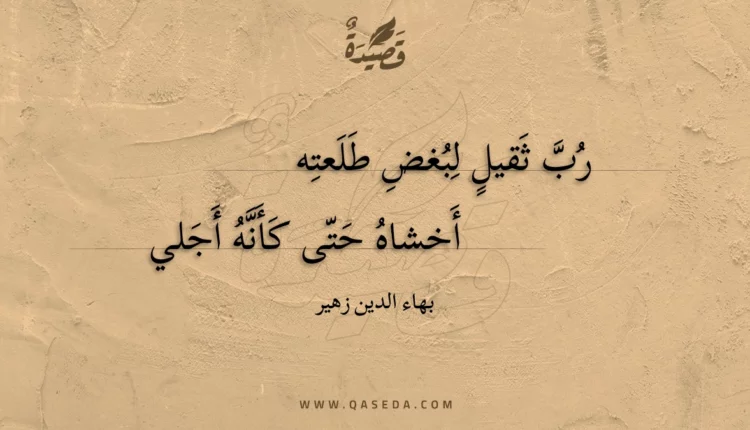 قَصِيدَةٌ
رُبَّ ثَقيلٍ لِبُغضِ طَلَعتِه
أَخشاهُ حَتّى كَأَنَّهُ أَجَلي
بهاء الدين زهير
WWW.QASEDA.COM